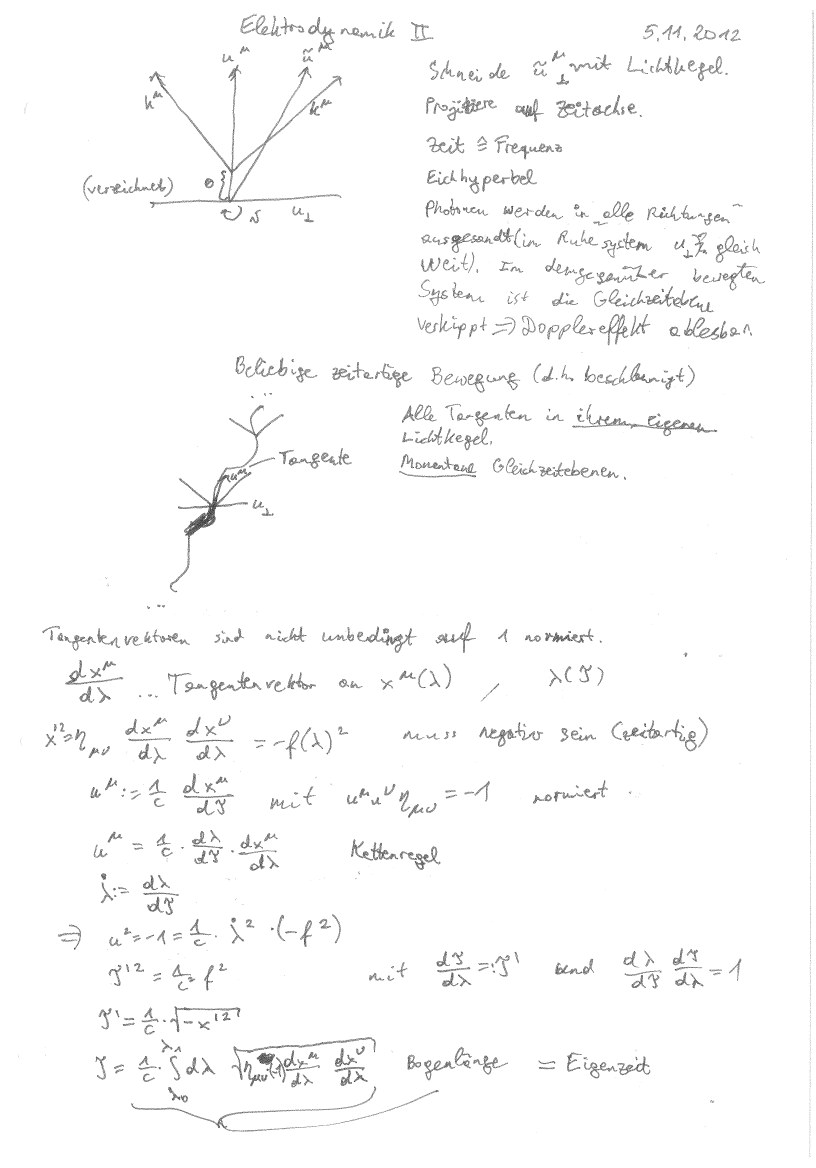 Elektrodynamik II
5.11.2012
k^μ
u^μ
ũ^μ
k^μ
(verzeichnet)
u_⊥
Schneide ũ^μ_⊥ mit Lichtkegel.
Projiziere auf Zeitachse.
Zeit ≙ Frequenz
Eichhyperbel
Photonen werden in „alle Richtungen"
ausgesandt (im Ruhesystem u_⊥ gleich
weit). Im demgegenüber bewegten
System ist die Gleichzeitebene
verkippt ⇒ Dopplereffekt ablesbar.
Beliebige zeitartige Bewegung (d.h. beschleunigt)
...
Tangente
u^μ
u_⊥
...
Alle Tangenten in ihrem eigenen
Lichtkegel.
Momentane Gleichzeitebenen.
Tangentenvektoren sind nicht unbedingt auf 1 normiert.
dx^μ/dλ ... Tangentenvektor an x^μ(λ) , λ(τ)
x'^2 = η_μν dx^μ/dλ dx^ν/dλ = -f(λ)^2 muss negativ sein (zeitartig)
u^μ := 1/c dx^μ/dτ mit u^μ u^ν η_μν = -1 normiert.
u^μ = 1/c · dλ/dτ · dx^μ/dλ Kettenregel
λ̇ := dλ/dτ
⇒ u^2 = -1 = 1/c · λ̇^2 · (-f^2)
τ'^2 = 1/c^2 f^2 mit dτ/dλ =: τ' und dλ/dτ dτ/dλ = 1
τ' = 1/c · √(-x'^2)
τ = 1/c · ∫_λ0^λ1 dλ √(η_μν (-1) dx^μ/dλ dx^ν/dλ) Bogenlänge = Eigenzeit